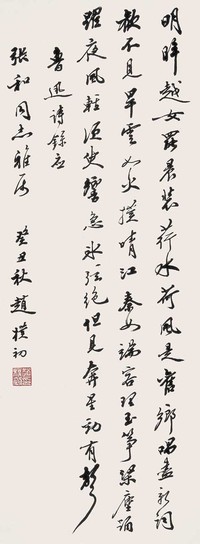 明眸越女罷晨裝荇水荷風是舊鄉唱盡新詞
歡不見旱雲如火撲晴江秦女端容理玉箏梁塵踊
躍夜風輕須臾響急冰弦絕但見奔星勁有聲
魯迅詩錄應
張和同志雅属 癸丑秋趙樸初